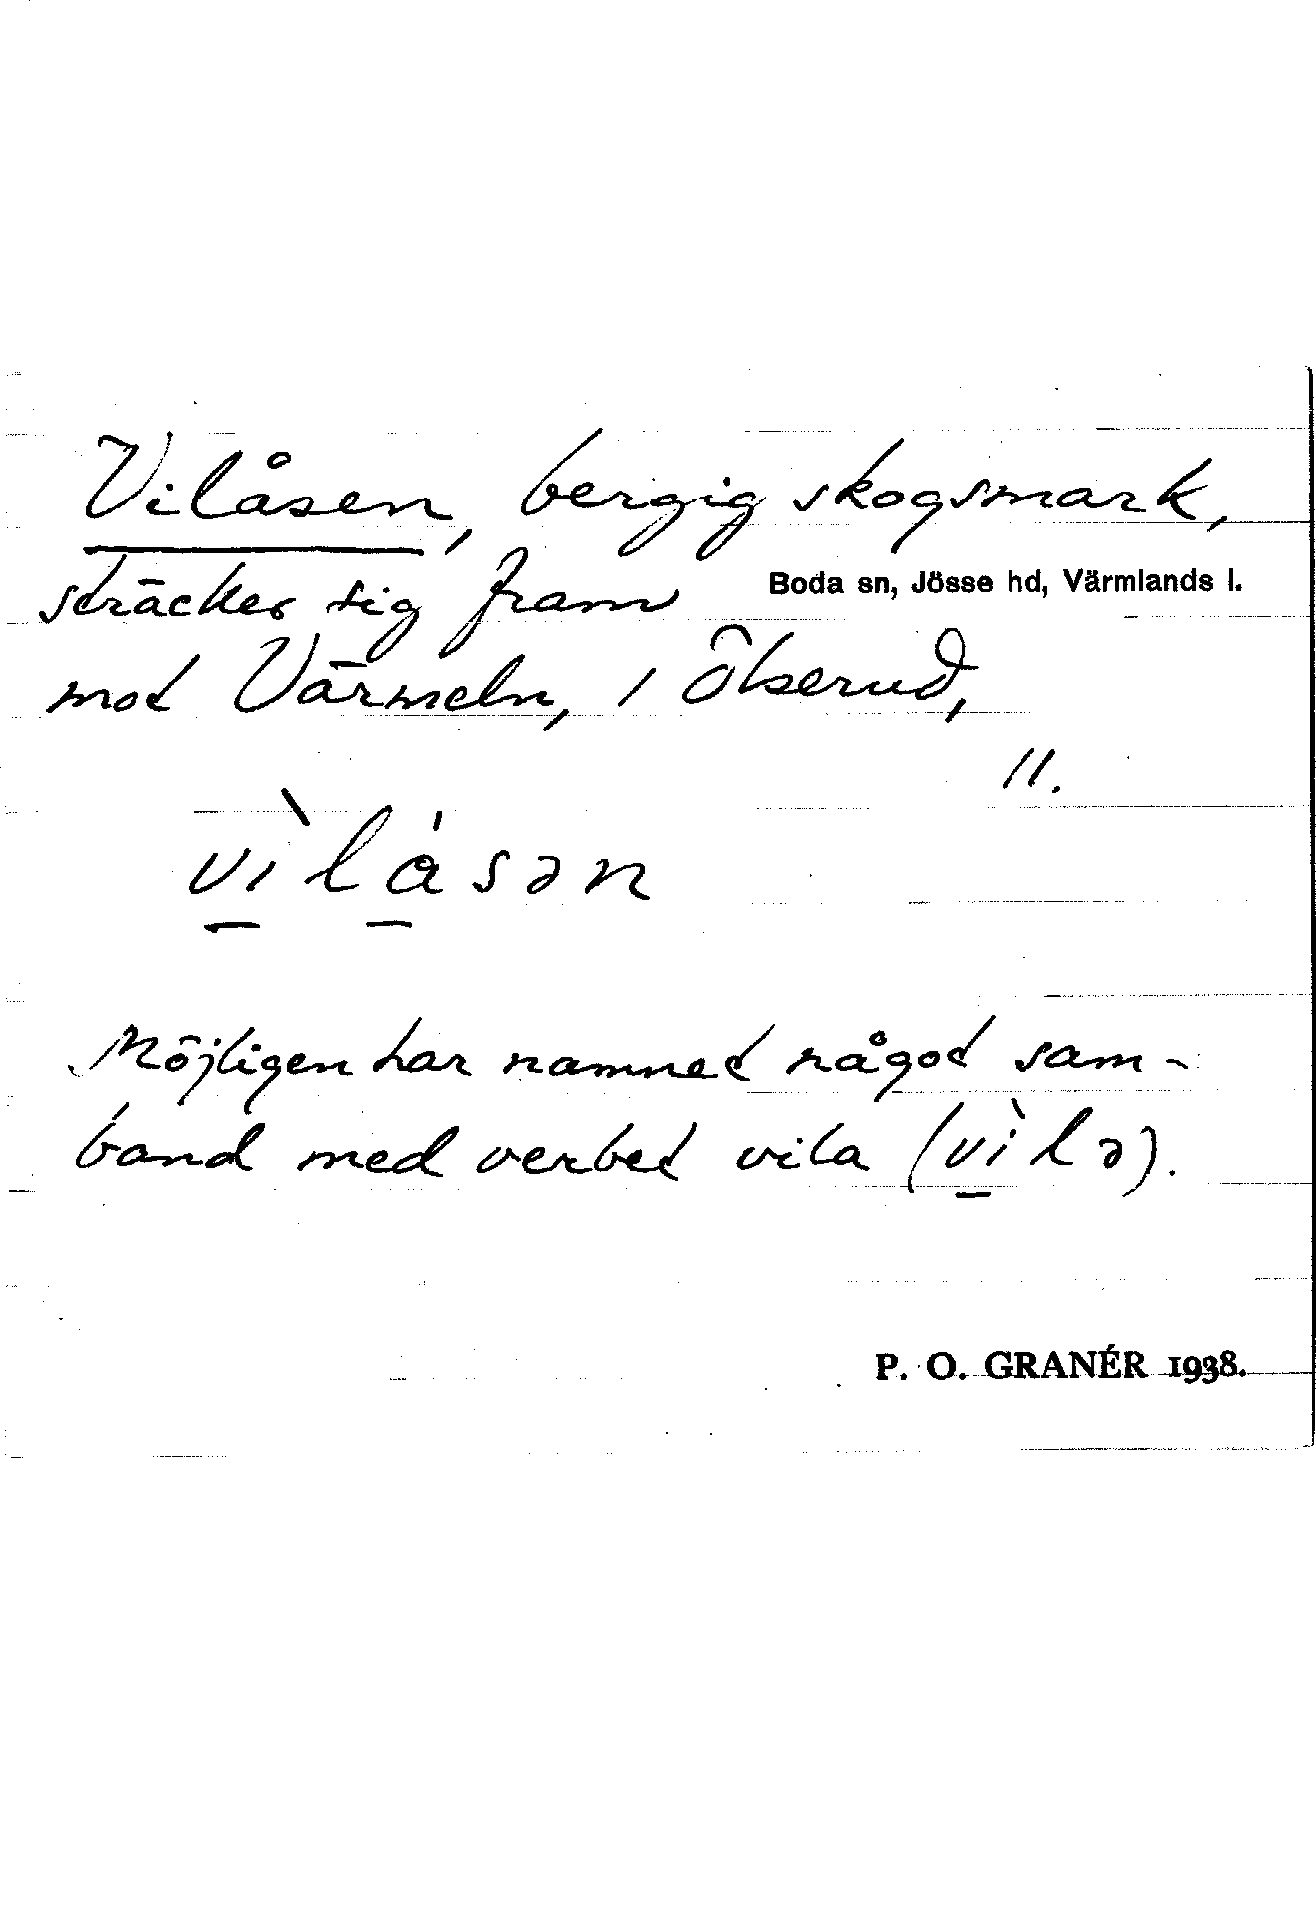 Vilåsen, bergig skogsmark,
sträcker sig fram
Boda sn, Jösse hd, Värmlands l.
mot Värmeln, i Ölserud,
11.
vìlåsən
Möjligen har namnet något sam-
band med verbet vila (vìlə).
P. O. GRANÉR 1938.